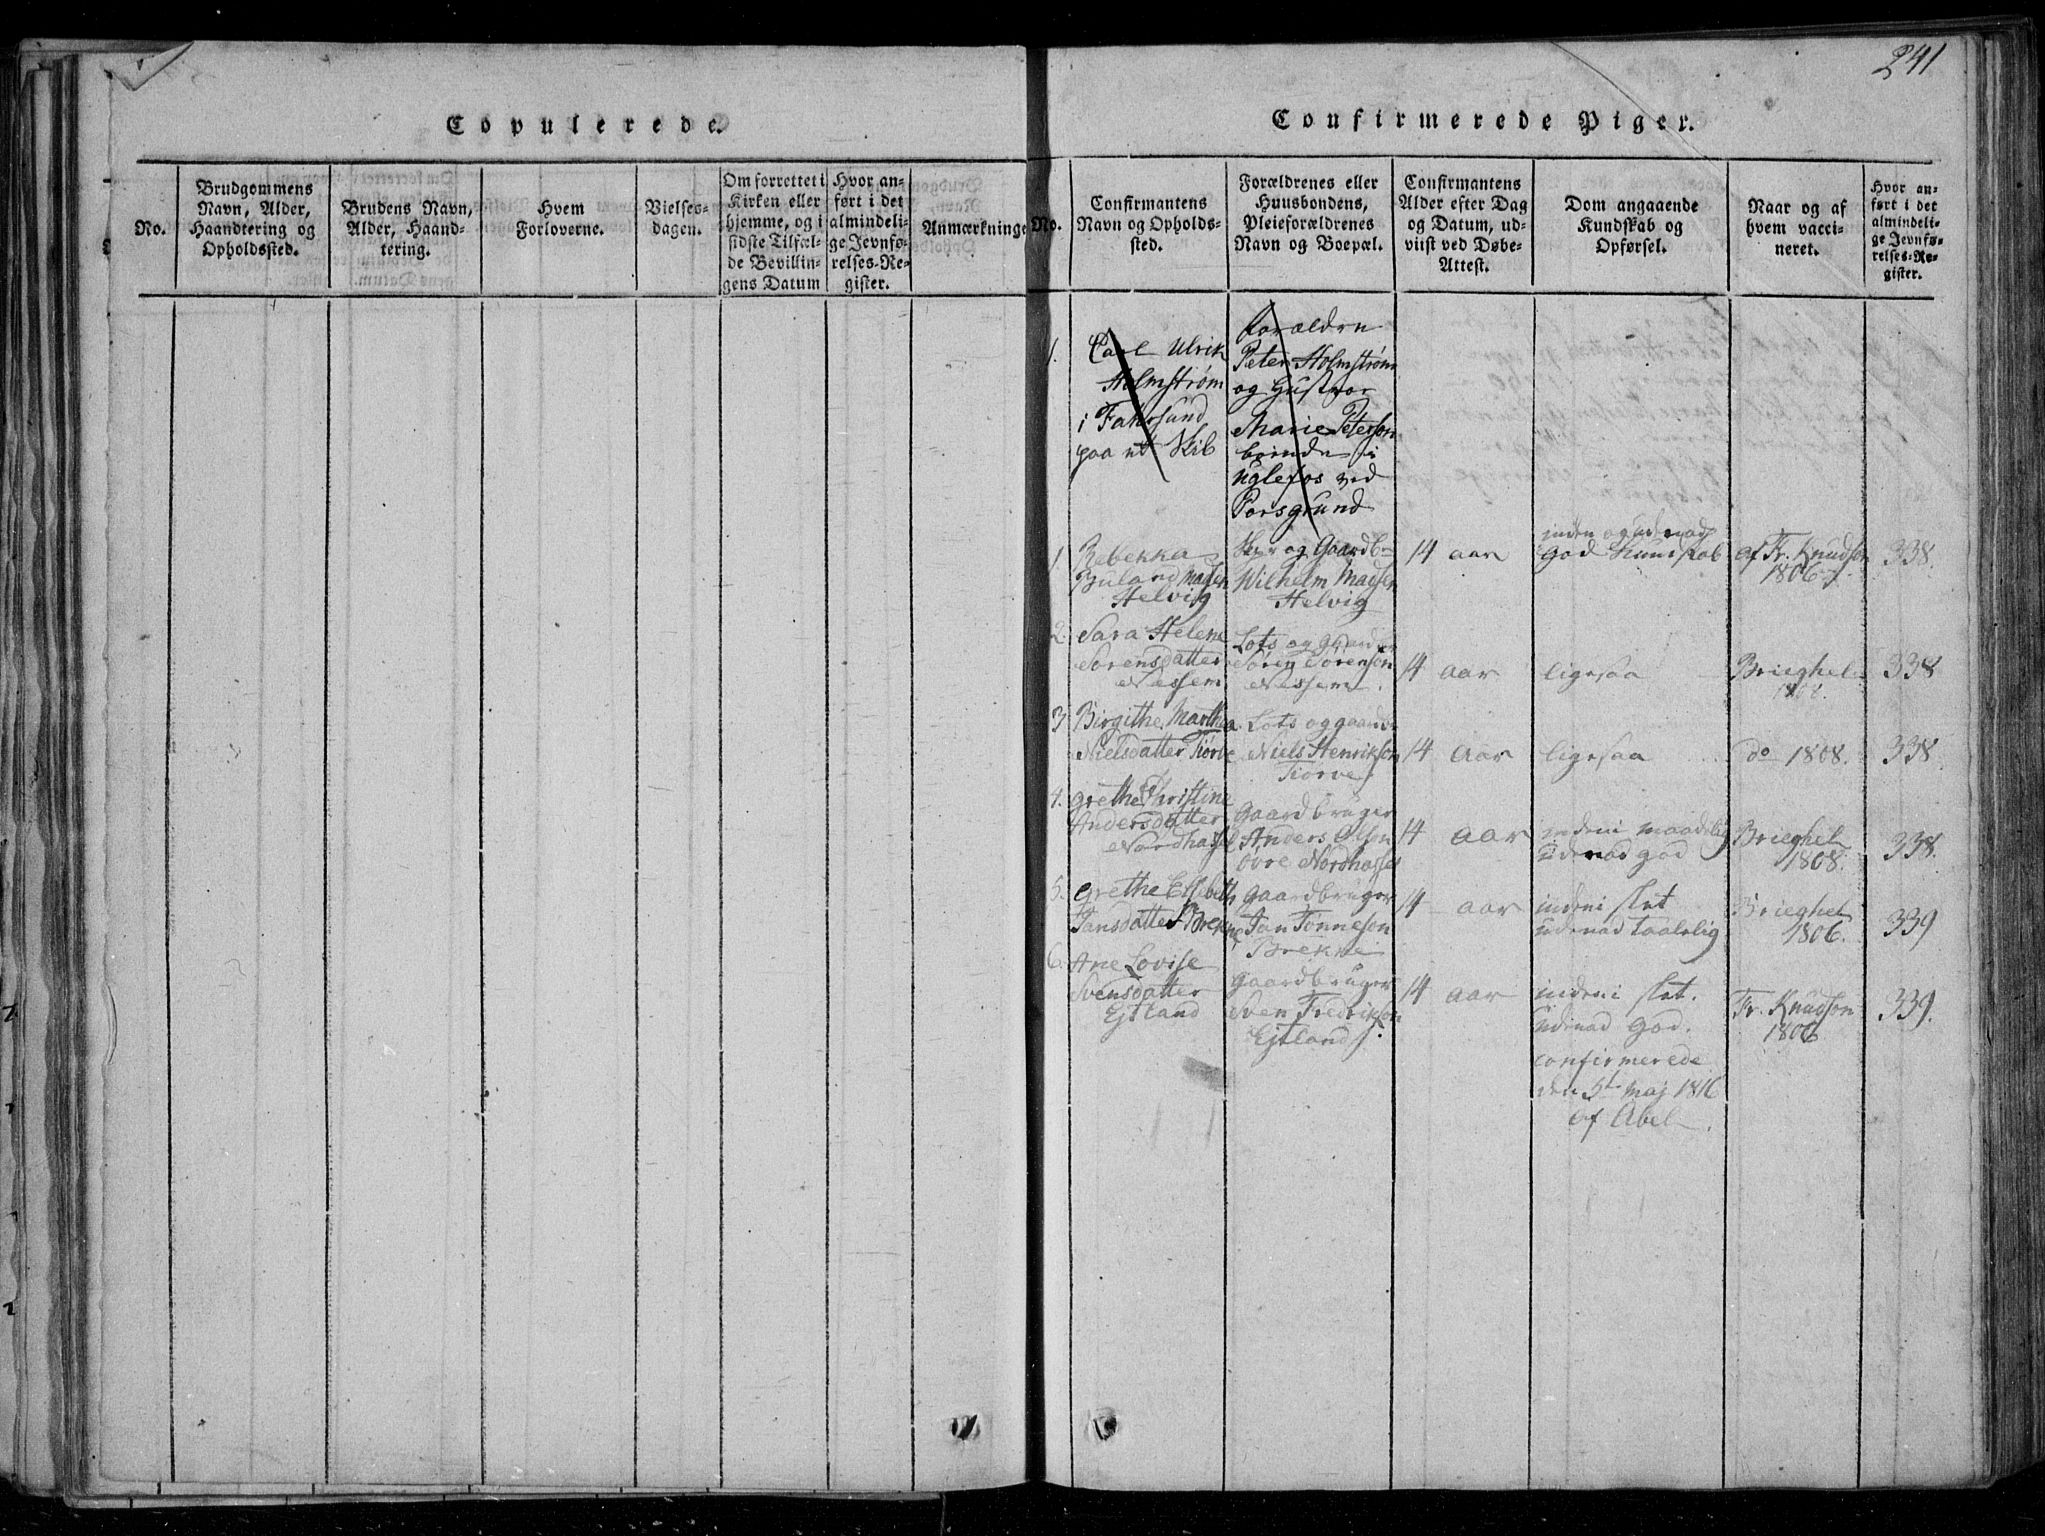 241
Copulerede.
No.
Brudgommens
Navn, Alder,
Haandtering og
Opholdssted.
Brudens Navn,
Alder, Haand-
tering.
Hvem
Forloverne.
Vielses-
dagen.
Om forrettet i
Kirken eller
hjemme, og i
sidste Tilfæl-
de Bevillin-
gens Datum
Hvor an-
ført i det
almindeli-
ge Jevnfø-
relses-Re-
gister.
Anmærkninge
Confirmerede Piger.
No.
Confirmantens
Navn og Opholds-
sted.
Forældrenes eller
Huusbondens,
Pleieforældrenes
Navn og Boepæl.
Confirmantens
Alder efter Dag
og Datum, ud-
viist ved Døbe-
Attest.
Dom angaaende
Kundskab og
Opførsel.
Naar og af
hvem vacci-
neret.
Hvor an-
ført i det
almindeli-
ge Jevnfø-
relses-Re-
gister.
1.
Carl Ulrik
Holmstrøm
i Fahrsund
paa et Skib
Forældre
Peter Holmstrøm
og Gustvor
Marie Peterson
boende i
Uglefos ved
Porsgrund
1
Rebekka
Buland Madsen
Helvig
og Gaardb
Wilhelm Madsen
Helvig
14 aar
inden og udenad
god Kundskab
af Fr. Knudson
1806
338.
2.
Sara Helene
Sorensdatter
Nessem
Lots og Gaardbr
Søren Sørenson
Nessem.
14 aar
ligesaa
Brieghel
338
3
Birgithe Marthea
Nielsdatter Tiørve
Lots og gaardbr
Niels Henrikson
Tiørve
14 aar
ligesaa
do 1808.
338
4.
Grethe Christine
Andersdatter
Nordhassel
Gaardbruger
Anders Olson
øvre Nordhassel
14 aar
indeni maadelig
udenad god
Brieghel
1808.
338.
5.
Grethe Elisabeth
Jansdatter Brekne
Gaardbruger
Jan Tønneson
Brekne
14 aar
indeni slet
udenad taalelig
Brieghel
1806.
339
6.
Ane Lovise
Svensdatter
Ejtland
Gaardbruger
Sven Fredrikson
Ejtland
14 aar
indeni slet.
udenad god.
Fr. Knudson
1806
339.
confirmerede
den 5t Maj 1816
af Abel.